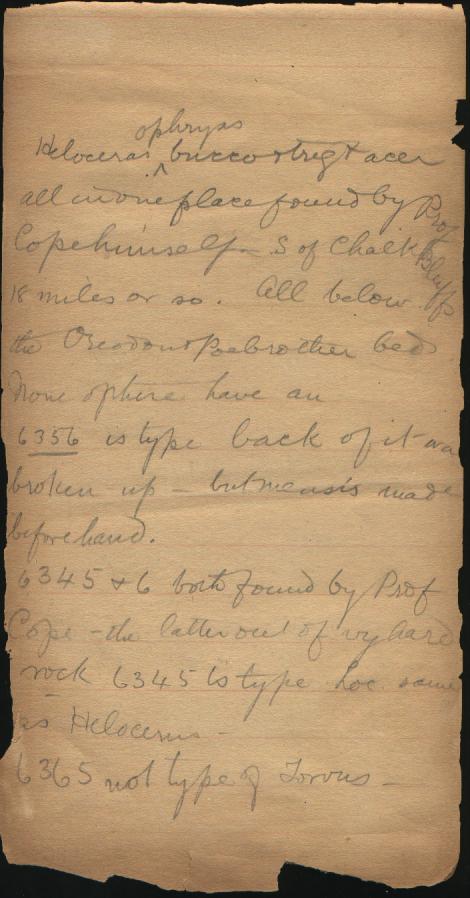 ophryas
Heloceras ^ bucco strig & acer
all in one place found by Prof
Cope himself - S of Chalk Bluffs
18 miles or so. All below
the Oreodon & Poebrother bed
None of these have an
6356 is type back of it wa
broken up - but meas is made
beforehand.
6345 & 6 both found by Prof
Cope - the latter out of vy hard
rock 6345 is type Loc same
as Helocerus -
6365 not type of Torvus -